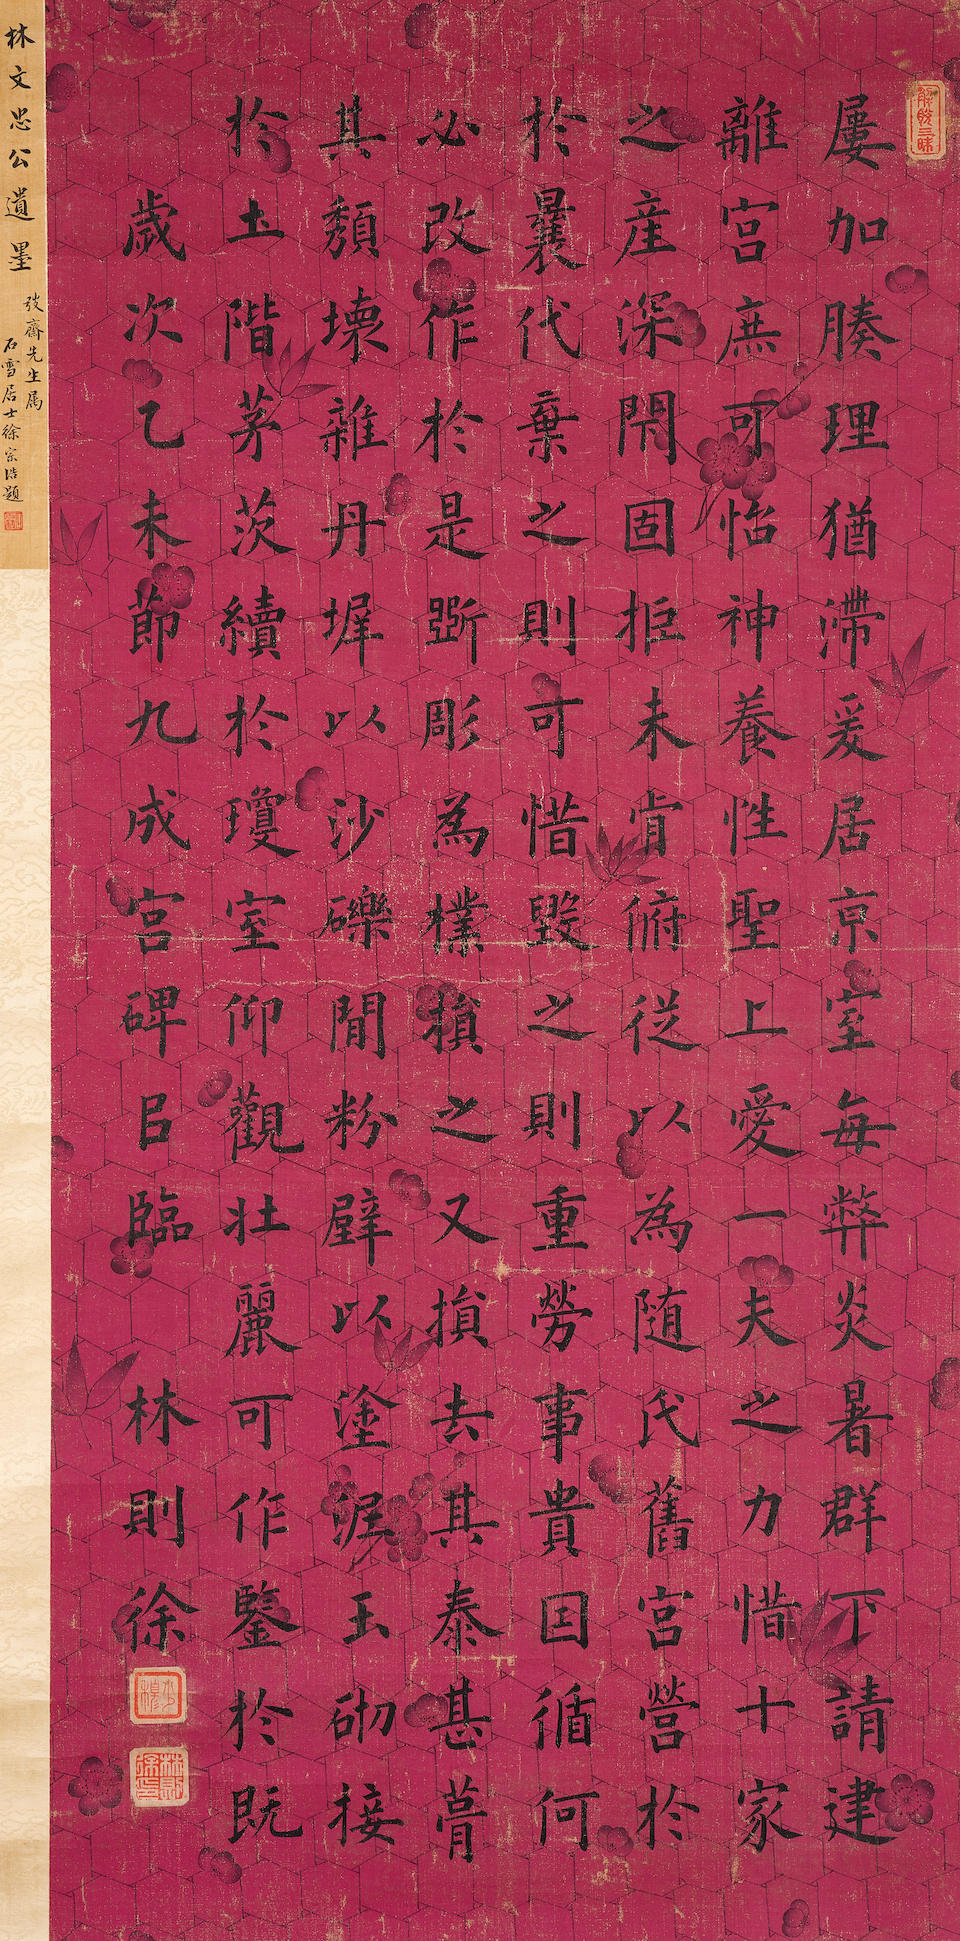 解脫三昧
屢加腠理猶滯爰居京室每弊炎暑群下請建
離宮庶可怡神養性聖上愛一夫之力惜十家
之産深閇固拒未肯俯從以為随氏舊宮營於
於曩代棄之則可惜毀之則重勞事貴因循何
必改作於是斲彫為樸損之又損去其泰甚葺
其頹壞雜丹墀以沙礫閒粉壁以塗泥玉砌接
於土階茅茨續於瓊室仰觀壯麗可作鑒於既
歲次乙未節九成宮碑㠯臨 林則徐
少穆
林則徐印
林文忠公遺墨
弢齋先生屬
石雪居士徐宗浩題